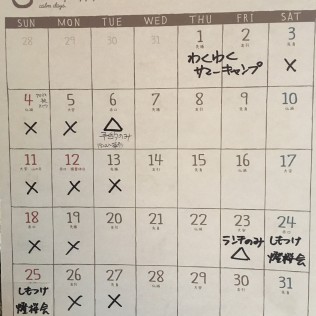 calm days
SUN MON TUE WED THU FRI SAT
28 29 30 31 1 2 3
わくわく
サマーキャンプ
×
4 5 6 7 8 9 10
× × △
11 12 13 14 15 16 17
× × ×
18 19 20 21 22 23 24
× ×
ランチのみ
△
しもつけ
燈桜会
25 26 27 28 29 30 31
しもつけ
燈桜会
× ×